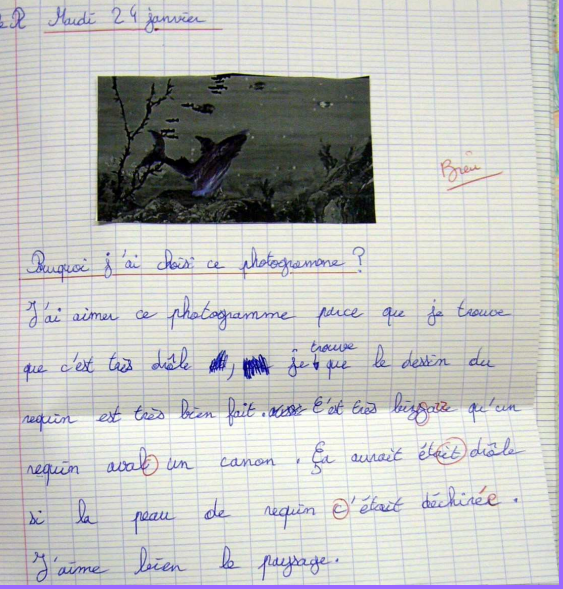 Mardi 24 janvier
Bien
Pourquoi j'ai choisi ce photogramme ?
J'ai aimer ce photogramme parce que je trouve
que c'est très drôle , je trouve que le dessin du
requin est très bien fait. C'est très bizzare qu'un
requin avale un canon. Ça aurait était drôle
si la peau de requin c'était déchirée.
J'aime bien le paysage.